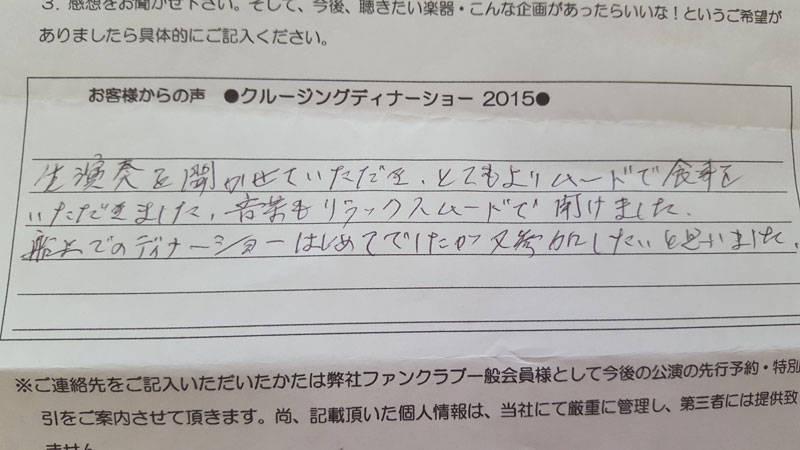 3. 感想をお聞かせ下さい。そして、今後、聴きたい楽器・こんな企画があったらいいな！というご希望が
ありましたら具体的にご記入ください。
お客様からの声 ●クルージングディナーショー 2015●
生演奏を聞かせていただき、とてもよりムードで食事を
いただきました。音楽もリラックスムードで聞けました。
船上でのディナーショーはじめてでしたが又参加したいと思いました。
※ご連絡先をご記入いただいたかたは弊社ファンクラブ一般会員様として今後の公演の先行予約・特別
引をご案内させて頂きます。尚、記載頂いた個人情報は、当社にて厳重に管理し、第三者には提供致
ません